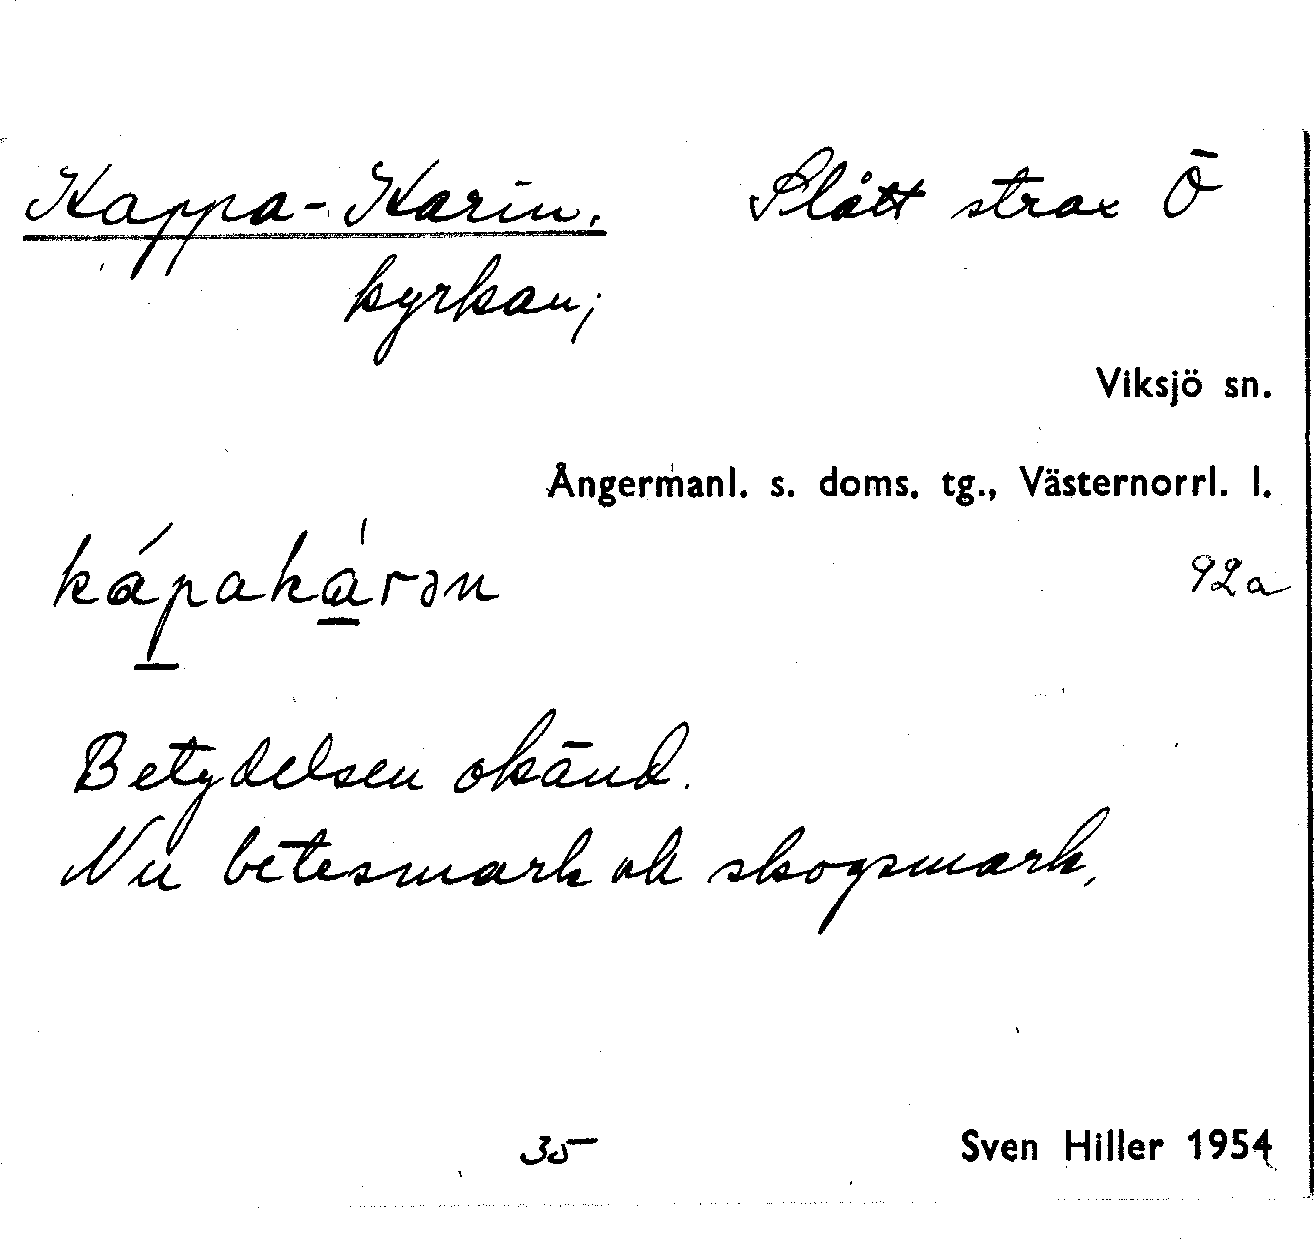 Kappa-Karin. Slått strax Ö
kyrkan;
Viksjö sn.
Ångermanl. s. doms. tg., Västernorrl. l.
kápakárən 92a
Betydelsen okänd.
Nu betesmark ok skogsmark.
35 Sven Hiller 1954